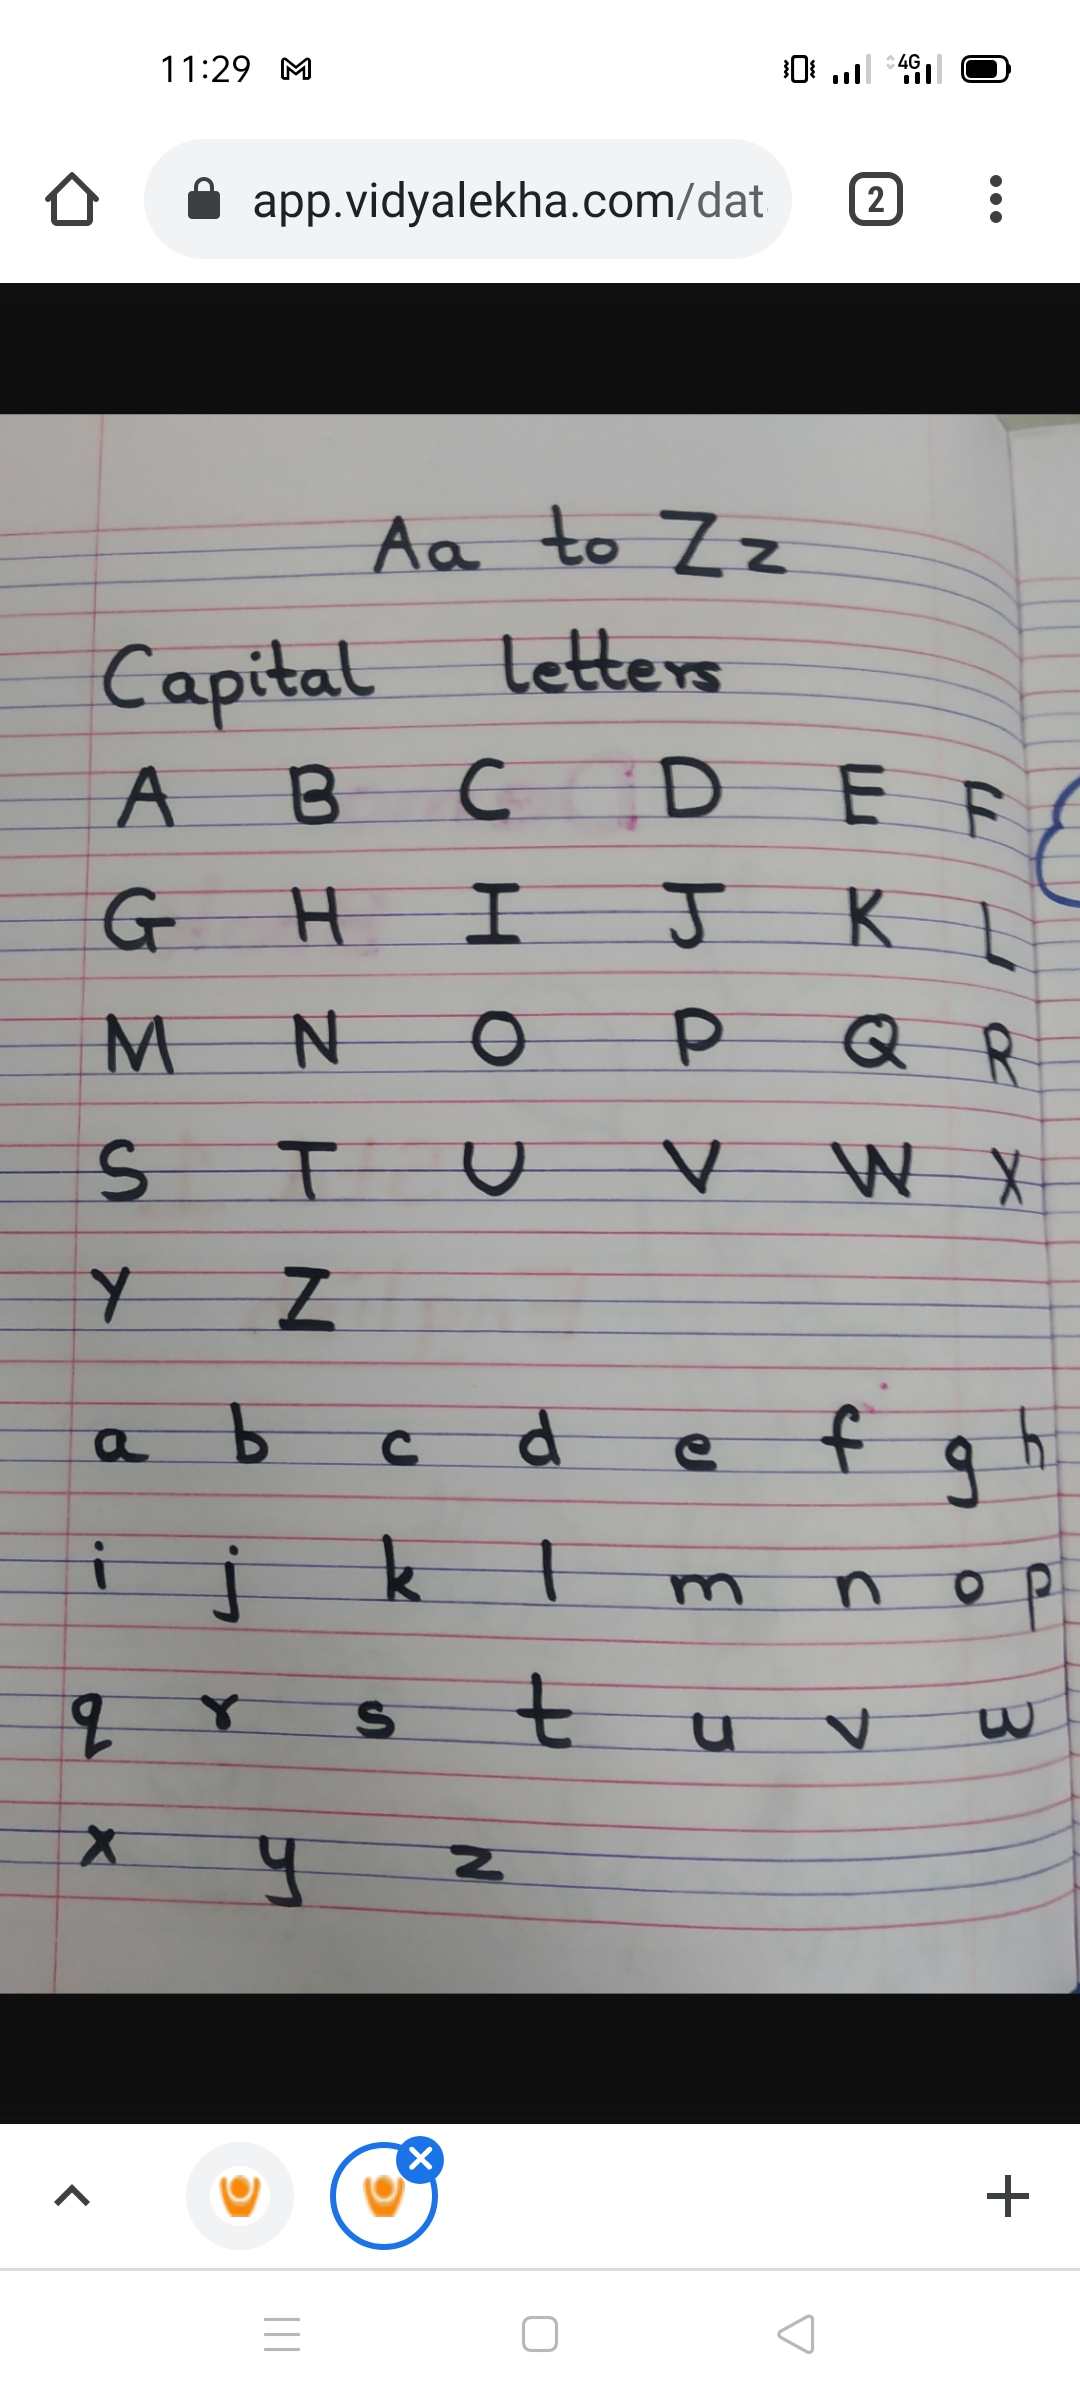 11:29
4G
app.vidyalekha.com/dat
2
Aa to Zz
Capital letters
A B C D E F
G H I J K L
M N O P Q R
S T U V W X
Y Z
a b c d e f g h
i j k l m n o p
q r s t u v w
x y z